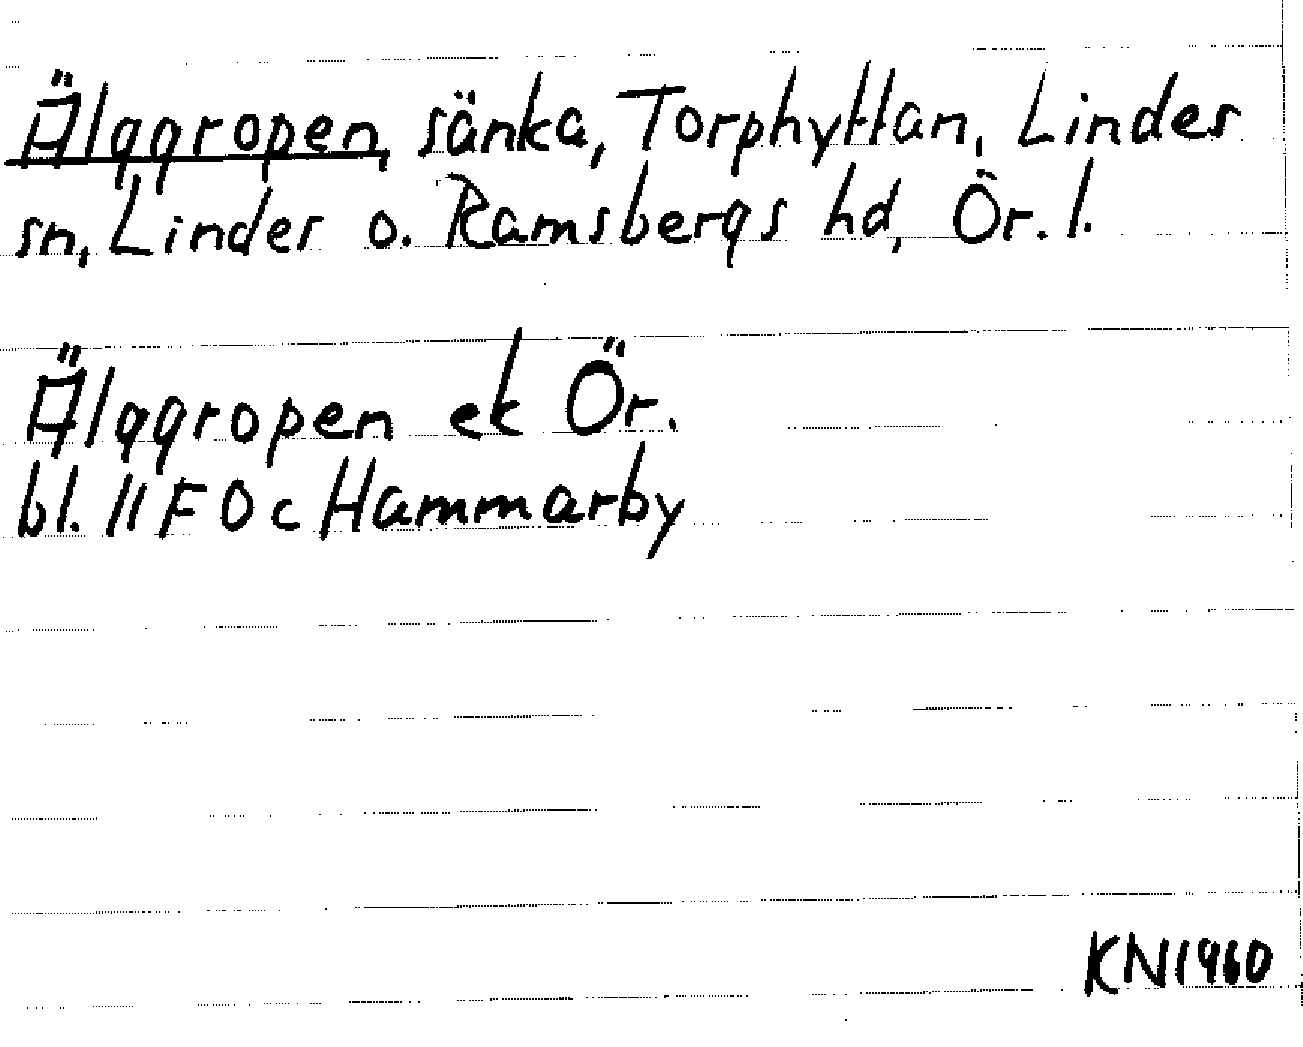 Älggropen, sänka, Torphyttan, Lindes
sn, Lindes o. Ramsbergs hd, Ör. l.
Älggropen ek Ör.
bl. 11 F 0 c Hammarby
KN1960